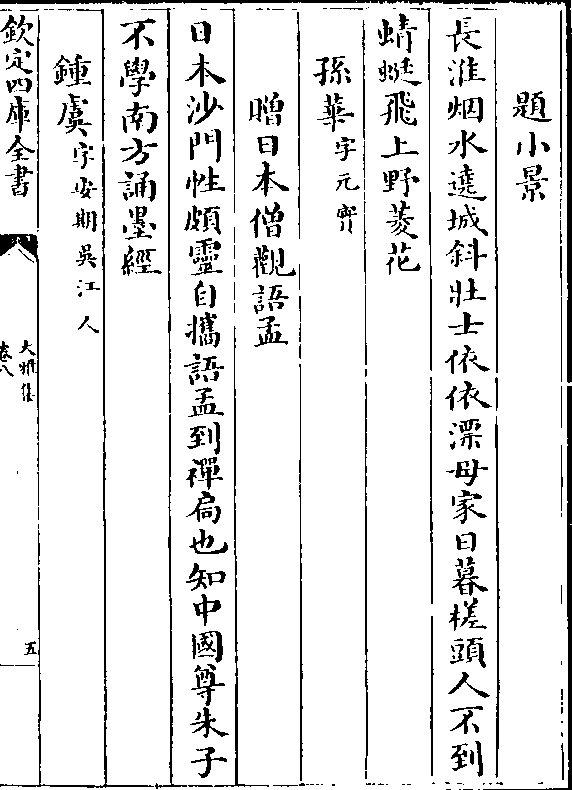 題小景
長淮烟水遶城斜壯士依依漂母家日暮槎頭人不到
蜻蜓飛上野菱花
孫華字元實
贈日本僧觀語孟
日本沙門性頗靈自攜語孟到禪扃也知中國尊朱子
不學南方誦墨經
鍾虞字安期吳江人
欽定四庫全書
大雅集
卷八
五